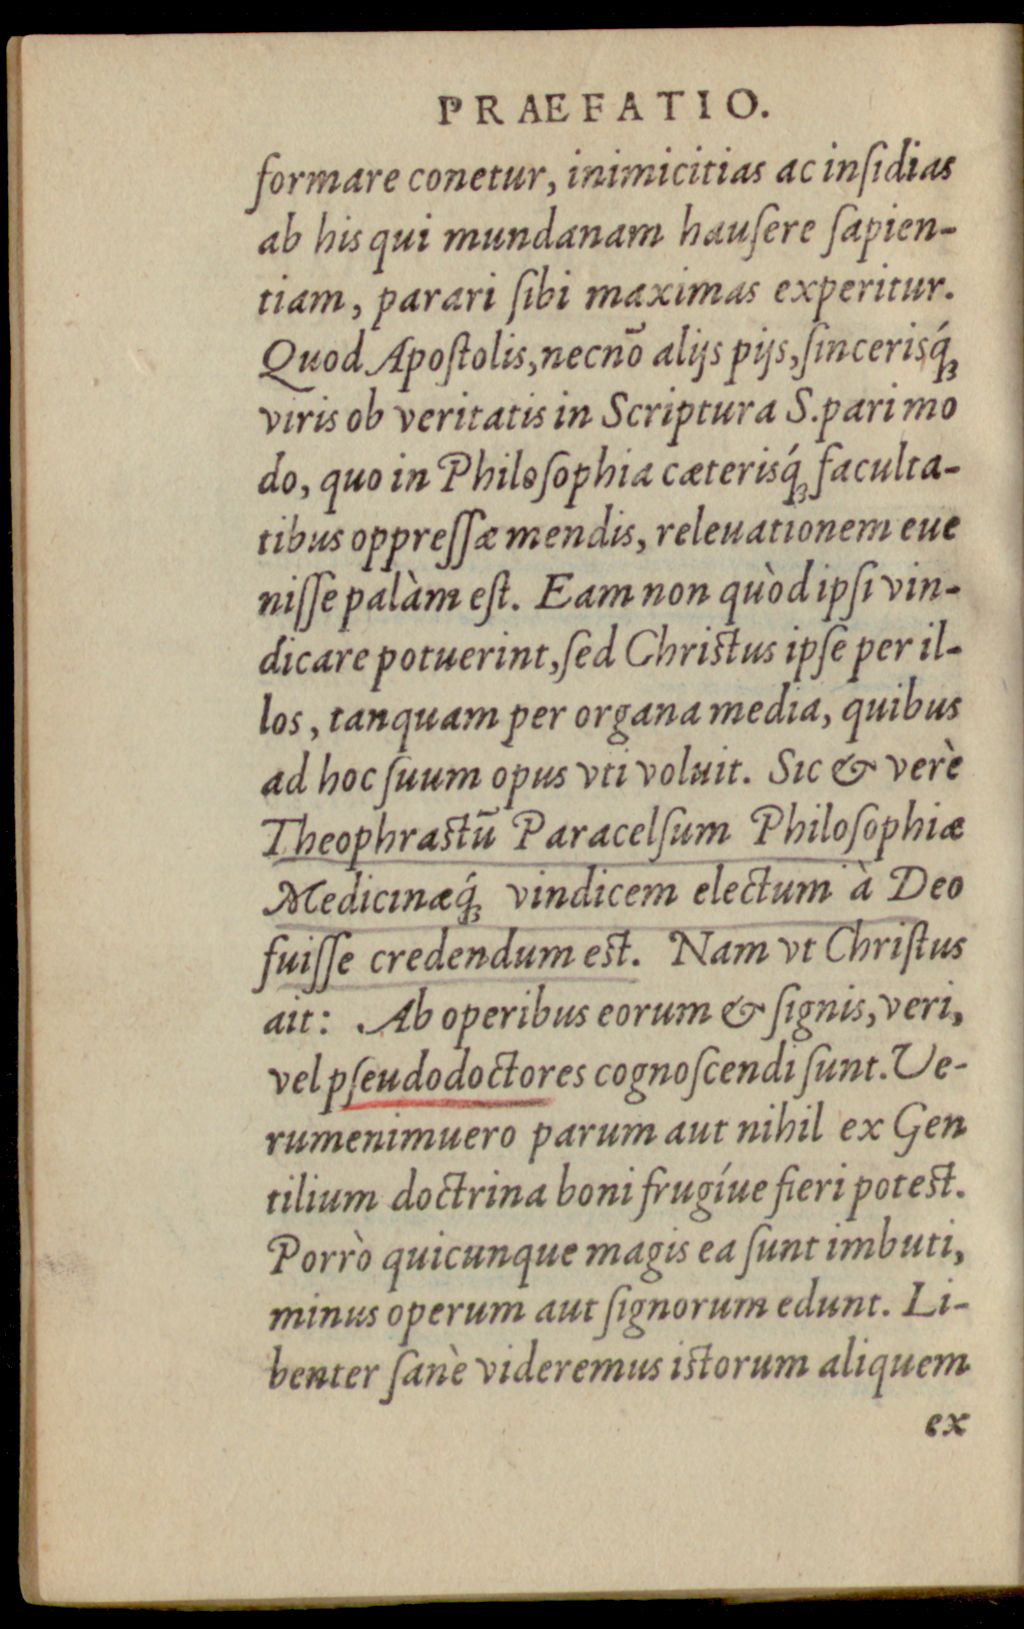 PRAEFATIO.
formare conetur, inimicitias ac inſidias
ab his qui mundanam hauſere ſapien-
tiam, parari ſibi maximas experitur.
Quod Apoſtolis, necnō alijs pijs, ſincerisq́;
viris ob veritatis in Scriptura S. pari mo
do, quo in Philoſophia cæterisq́; faculta-
tibus oppreſſæ mendis, releuationem eue
niſſe palàm eſt. Eam non quòd ipſi vin-
dicare potuerint, ſed Chriſtus ipſe per il-
los, tanquam per organa media, quibus
ad hoc ſuum opus vti voluit. Sic & verè
Theophraſtū Paracelſum Philoſophiæ
Medicinæq́; vindicem electum à Deo
fuiſſe credendum eſt. Nam vt Chriſtus
ait: Ab operibus eorum & ſignis, veri,
vel pſeudodoctores cognoſcendi ſunt. Ve-
rumenimuero parum aut nihil ex Gen
tilium doctrina boni frugíue fieri poteſt.
Porrò quicunque magis ea ſunt imbuti,
minus operum aut ſignorum edunt. Li-
benter ſanè videremus iſtorum aliquem
ex